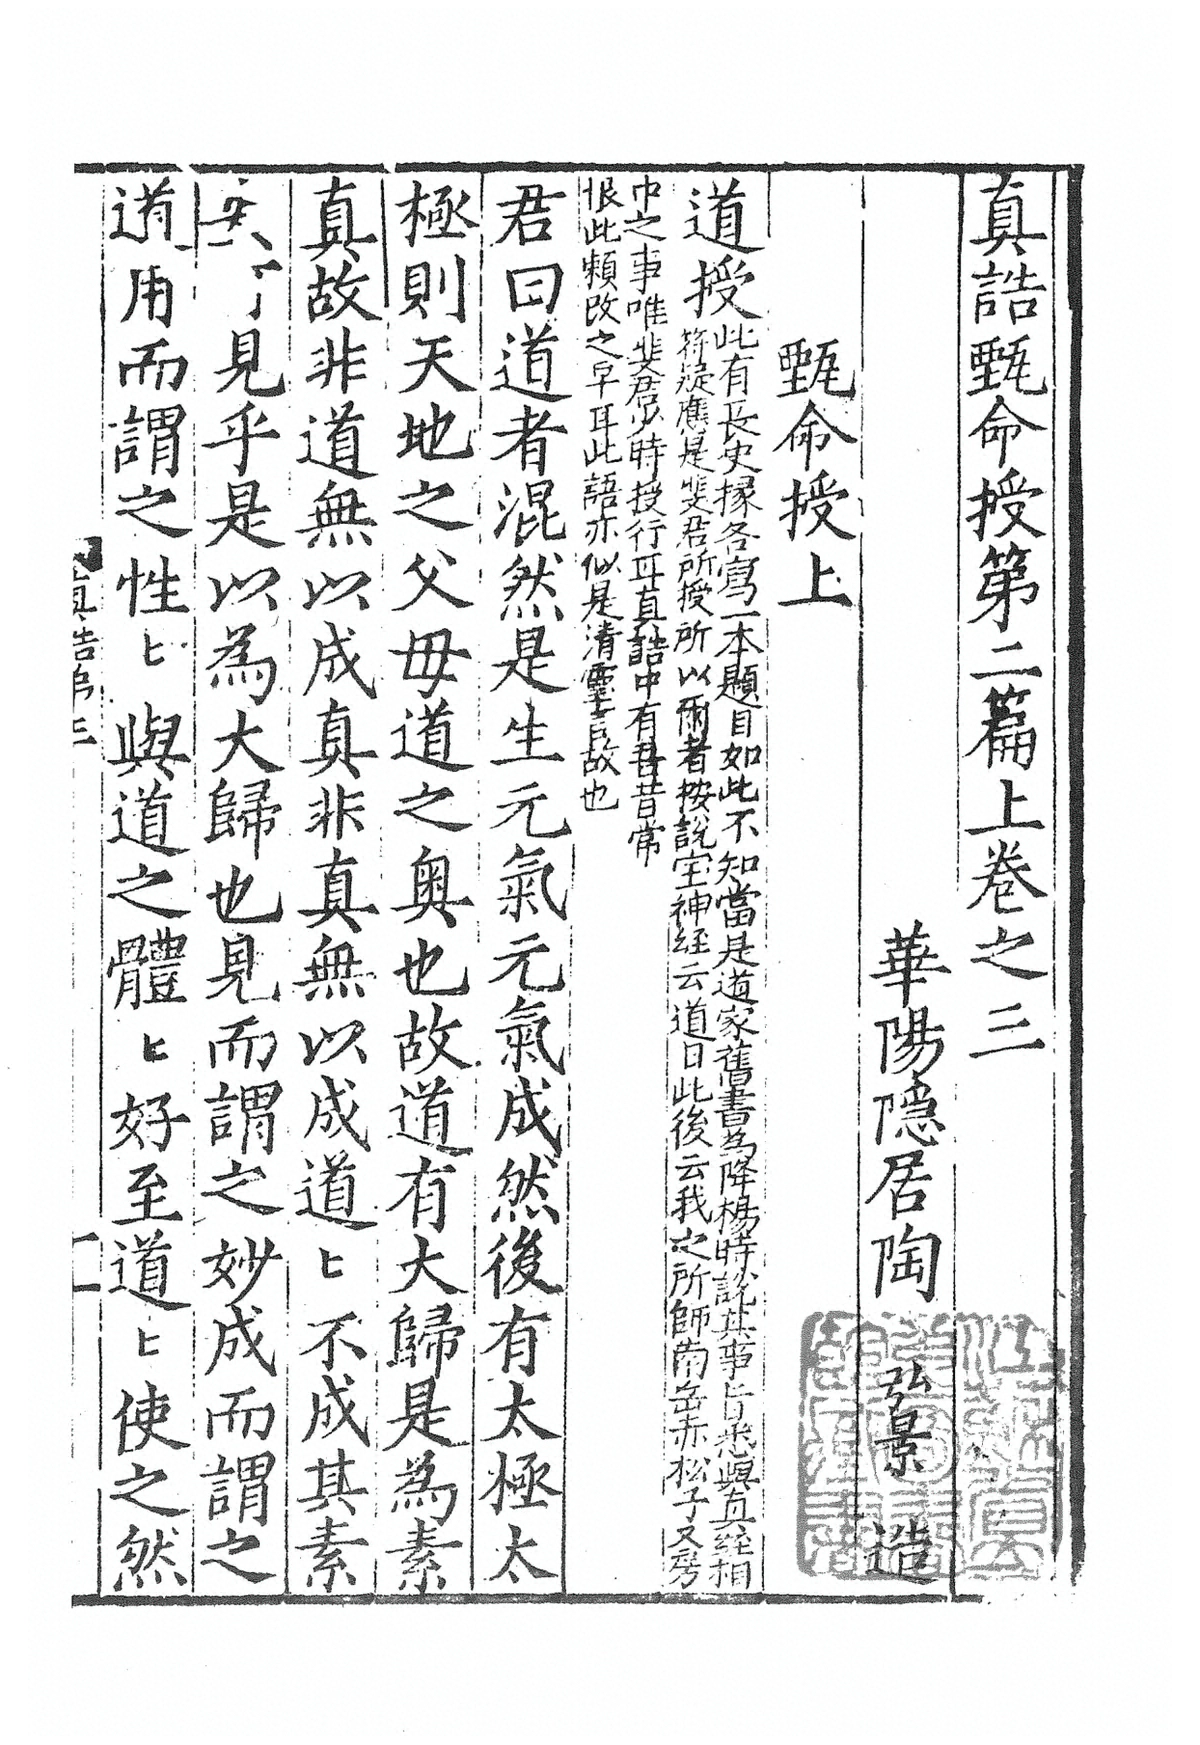 真誥甄命授第二篇上卷之三
華陽隱居陶 弘景 造
甄命授上
道授
此有長史掾各寫一本題目如此不知當是道家舊書為降楊時說其事旨悉與真經相
符疑應是裴君所授所以爾者按說寳神經云道曰此後云我之所師南岳赤松子又房
中之事唯裴君少時授行耳真誥中有吾昔常
恨此頼改之早耳此語亦似是清靈言故也
君曰道者混然是生元氣元氣成然後有太極太
極則天地之父母道之奥也故道有大歸是為素
真故非道無以成真非真無以成道匕不成其素
安可見乎是以為大歸也見而謂之妙成而謂之
道用而謂之性匕與道之體匕好至道匕使之然
真誥弟三
一